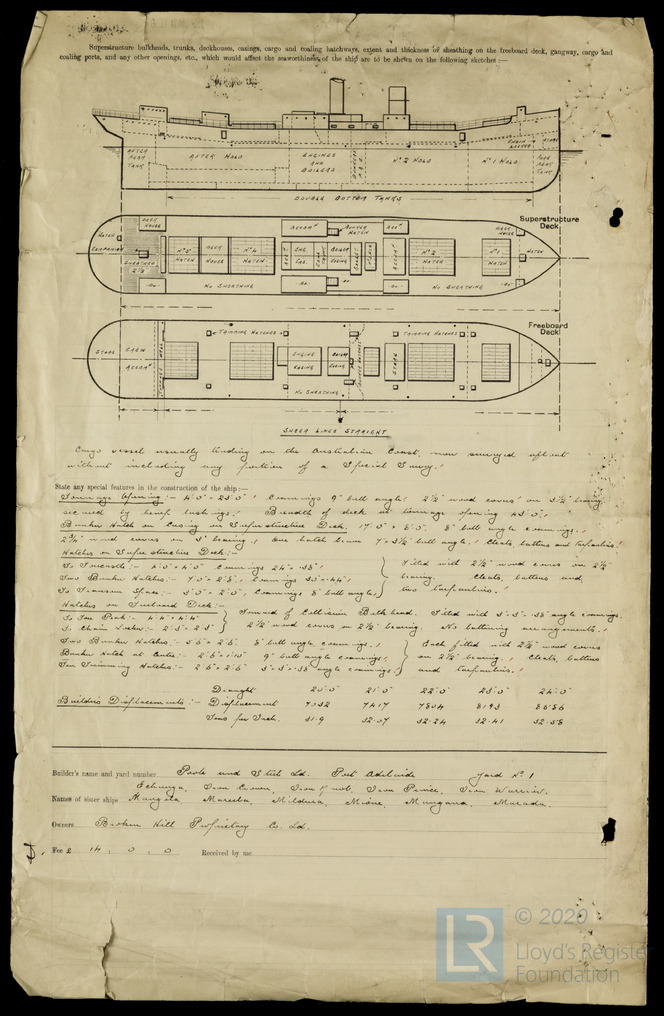 Superstructure bulkheads, trunks, deckhouses, casings, cargo and coaling hatchways, extent and thickness of sheathing on the freeboard deck, gangway, cargo and
coaling ports, and any other openings, etc., which would affect the seaworthiness of the ship are to be shewn on the following sketches :—
AFTER PEAK TANK
AFTER HOLD
ENGINES AND BOILERS
Nº 2 HOLD
Nº 1 HOLD
CHAIN LOCKER
STORE
FORE PEAK TANK
DOUBLE BOTTOM TANKS
Superstructure Deck
DECK HOUSE
BUNKER HATCH
HATCH
COMPANION
SHEATHED 2½
Nº 3 HATCH
DECK HOUSE
Nº 4 HATCH
ENG. CAS.
BOILER CASING
Nº 2 HATCH
Nº 1 HATCH
HATCH
DECK HOUSE
NO SHEATHING
NO SHEATHING
Freeboard Deck
STORE
CREW
ACCOMN
TRIMMING HATCHES
TRIMMING HATCHES
ENGINE CASING
BOILER CASING
STORE
NO SHEATHING
SHEER LINES STRAIGHT
Cargo vessel usually trading on the Australian Coast, now surveyed afloat
without including any portion of a Special Survey.
State any special features in the construction of the ship:—
Tonnage Opening :- 4'.0" × 25'.0" Coamings 9" bulb angle. 2½" wood covers on 3½" bearing,
secured by hemp lashings. Breadth of deck at tonnage opening 43'.0".
Bunker Hatch on Casing on Superstructure Deck. 17'.0" × 8'.0". 8" bulb angle coamings.
2¾" wood covers on 3" bearing. One hatch beam 7" × bulb angle. Cleats, battens and tarpaulins.
Hatches on Superstructure Deck :-
To Forecastle :- 4'.0" × 4'.0" Coamings 24" × .38"
Two Bunker Hatches :- 7'.0" × 2'.8", Coamings 30" × .44"
To Transom Space :- 3'.0" × 2'.0", Coamings 8" bulb angle,
Fitted with 2½" wood covers on 2½"
bearing. Cleats, battens and
two tarpaulins.
Hatches on Freeboard Deck :-
To Fore Peak :- 4'.4" × 4'.4"
To Chain Locker :- 2'.3" × 2'.3"
Forward of Collision Bulkhead. Fitted with 3" × 3" × .38" angle coamings.
2½" wood covers on 2½" bearing. No battening arrangements.
Two Bunker Hatches :- 5'.6" × 2'.6" 8" bulb angle coamings.
Bunker Hatch at Centre :- 2'.6" × 1'.10" 9" bulb angle coamings,
Ten Trimming Hatches :- 2'.6" × 2'.6" 3" × 3" × .38" angle coamings,
Each fitted with 2½" wood covers
on 2½" bearing. Cleats, battens
and tarpaulins.
Draught 20'.0" 21'.0" 22'.0" 23'.0" 24'.0"
Builders Displacements :- Displacement 7032 7417 7804 8193 8686
Tons per Inch. 31.9 32.07 32.24 32.41 32.58
Builder's name and yard number Poole and Steel Ld. Port Adelaide Yard Nº 1
Echunga, Iron Crown, Iron Knob, Iron Prince, Iron Warrior,
Names of sister ships Mungata Mareeba, Mildura, Minne, Mungana, Murada.
Owners Broken Hill Proprietary Co. Ld.
Fee £ 14 : 0 : 0 Received by me
LR
© 2020
Lloyd's Register
Foundation